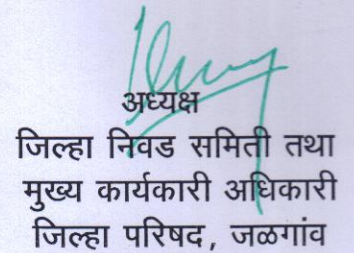 अध्यक्ष
जिल्हा निवड समिती तथा
मुख्य कार्यकारी अधिकारी
जिल्हा परिषद, जळगांव